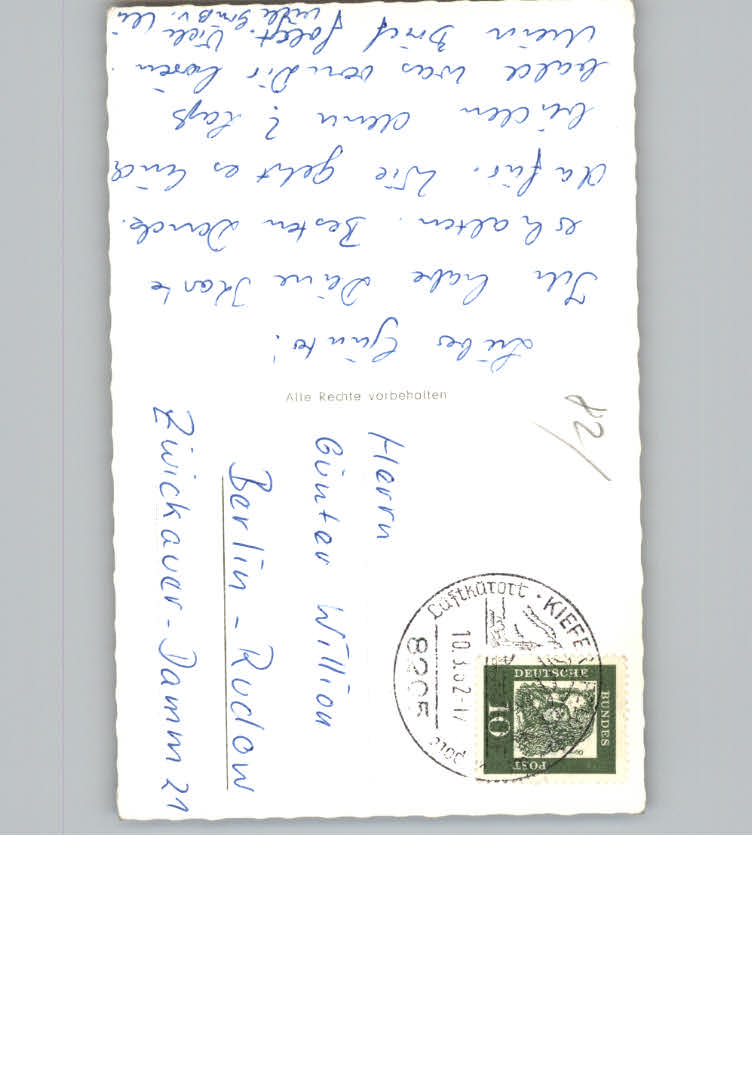 Lieber Günter!
Ich habe Deine Karte
erhalten. Besten Dank
dafür. Wie geht es Euch
beiden denn? Lass
bald was von Dir hören.
Mein Brief folgt. Viele
Alle Rechte vorbehalten
Herrn
Günter Willion
Berlin - Rudow
Zwickauer-Damm 21
82/
Luftkurort · KIEFER
8205
DEUTSCHE
BUNDES
POST
10